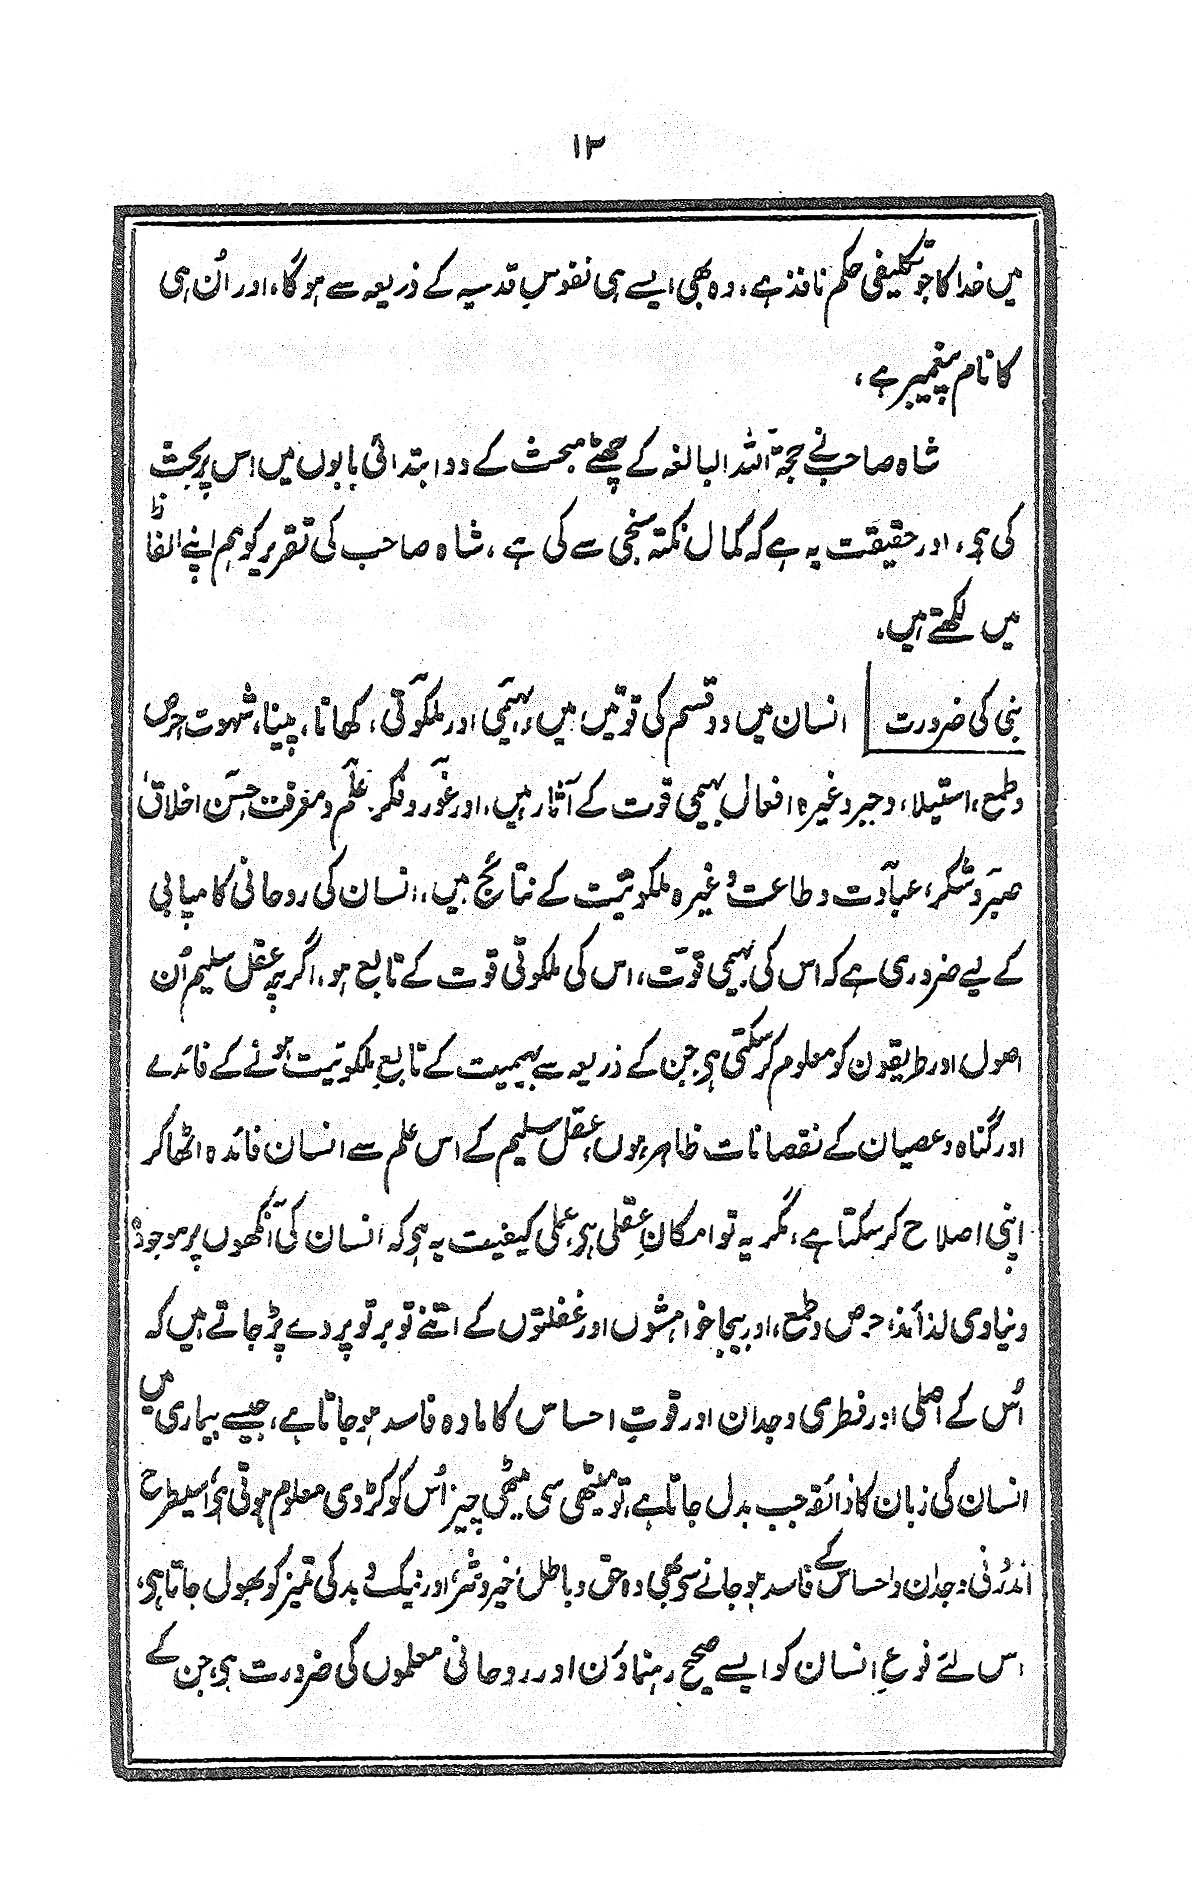 ۱۳
میں خدا کا جو تکلیفی حکم نافذ ہے، وہ بھی ایسے ہی نفوسِ قدسیہ کے ذریعہ سے ہوگا، اور اُن ہی
کا نام پیغمبر ہے،
شاہ صاحب نے حجۃ اللہ البالغہ کے چھٹے مبحث کے دو ابتدائی بابوں میں اس پر بحث
کی ہی، اور حقیقت یہ ہے کہ کمال نکتہ سنجی سے کی ہے، شاہ صاحب کی تقریر کو ہم اپنے الفاظ
میں لکھتے ہیں،
نبی کی ضرورت انسان میں دو قسم کی قوتیں ہیں، بہیمی اور ملکوتی، کھانا، پینا، شہوت، حرص
و طمع، استیلا، و جبر وغیرہ افعال بہیمی قوت کے آثار ہیں، اور غور و فکر، علم و معرفت، حسن اخلاق،
صبر و شکر، عبادت و طاعت وغیرہ ملکوتیت کے نتائج ہیں، انسان کی روحانی کامیابی
کے لیے ضروری ہے کہ اس کی بہیمی قوت، اس کی ملکوتی قوت کے تابع ہو، اگرچہ عقل سلیم اُن
اصول اور طریقون کو معلوم کر سکتی ہی جن کے ذریعہ سے بہیمیت کے تابع ملکوتیت ہونے کے فائدے
اور گناہ و عصیان کے نقصانات ظاہر ہوں، عقل سلیم کے اس علم سے انسان فائدہ اٹھا کر
اپنی اصلاح کر سکتا ہے، مگر یہ تو امکانِ عقلی ہی، عملی کیفیت یہ ہی کہ انسان کی آنکھوں پر موجودہ
دنیاوی لذائذ، حرص و طمع، اور بیجا خواہشوں اور غفلتوں کے اتنے تو بر تو پردے پڑ جاتے ہیں کہ
اُس کے اصلی اور فطری وجدان اور قوتِ احساس کا مادہ فاسد ہو جاتا ہے، جیسے بیماری میں
انسان کی زبان کا ذائقہ جب بدل جاتا ہے، تو میٹھی سی میٹھی چیز اُس کو کڑوی معلوم ہوتی ہی، اسیطرح
اندرونی وجدان و احساس کے فاسد ہو جانے سے بھی وہ حق و باطل، خیر و شر، اور نیک و بد کی تمیز کو بھول جاتا ہی،
اس لئے نوعِ انسان کو ایسے صحیح رہنماؤن اور روحانی معلموں کی ضرورت ہی، جن کے